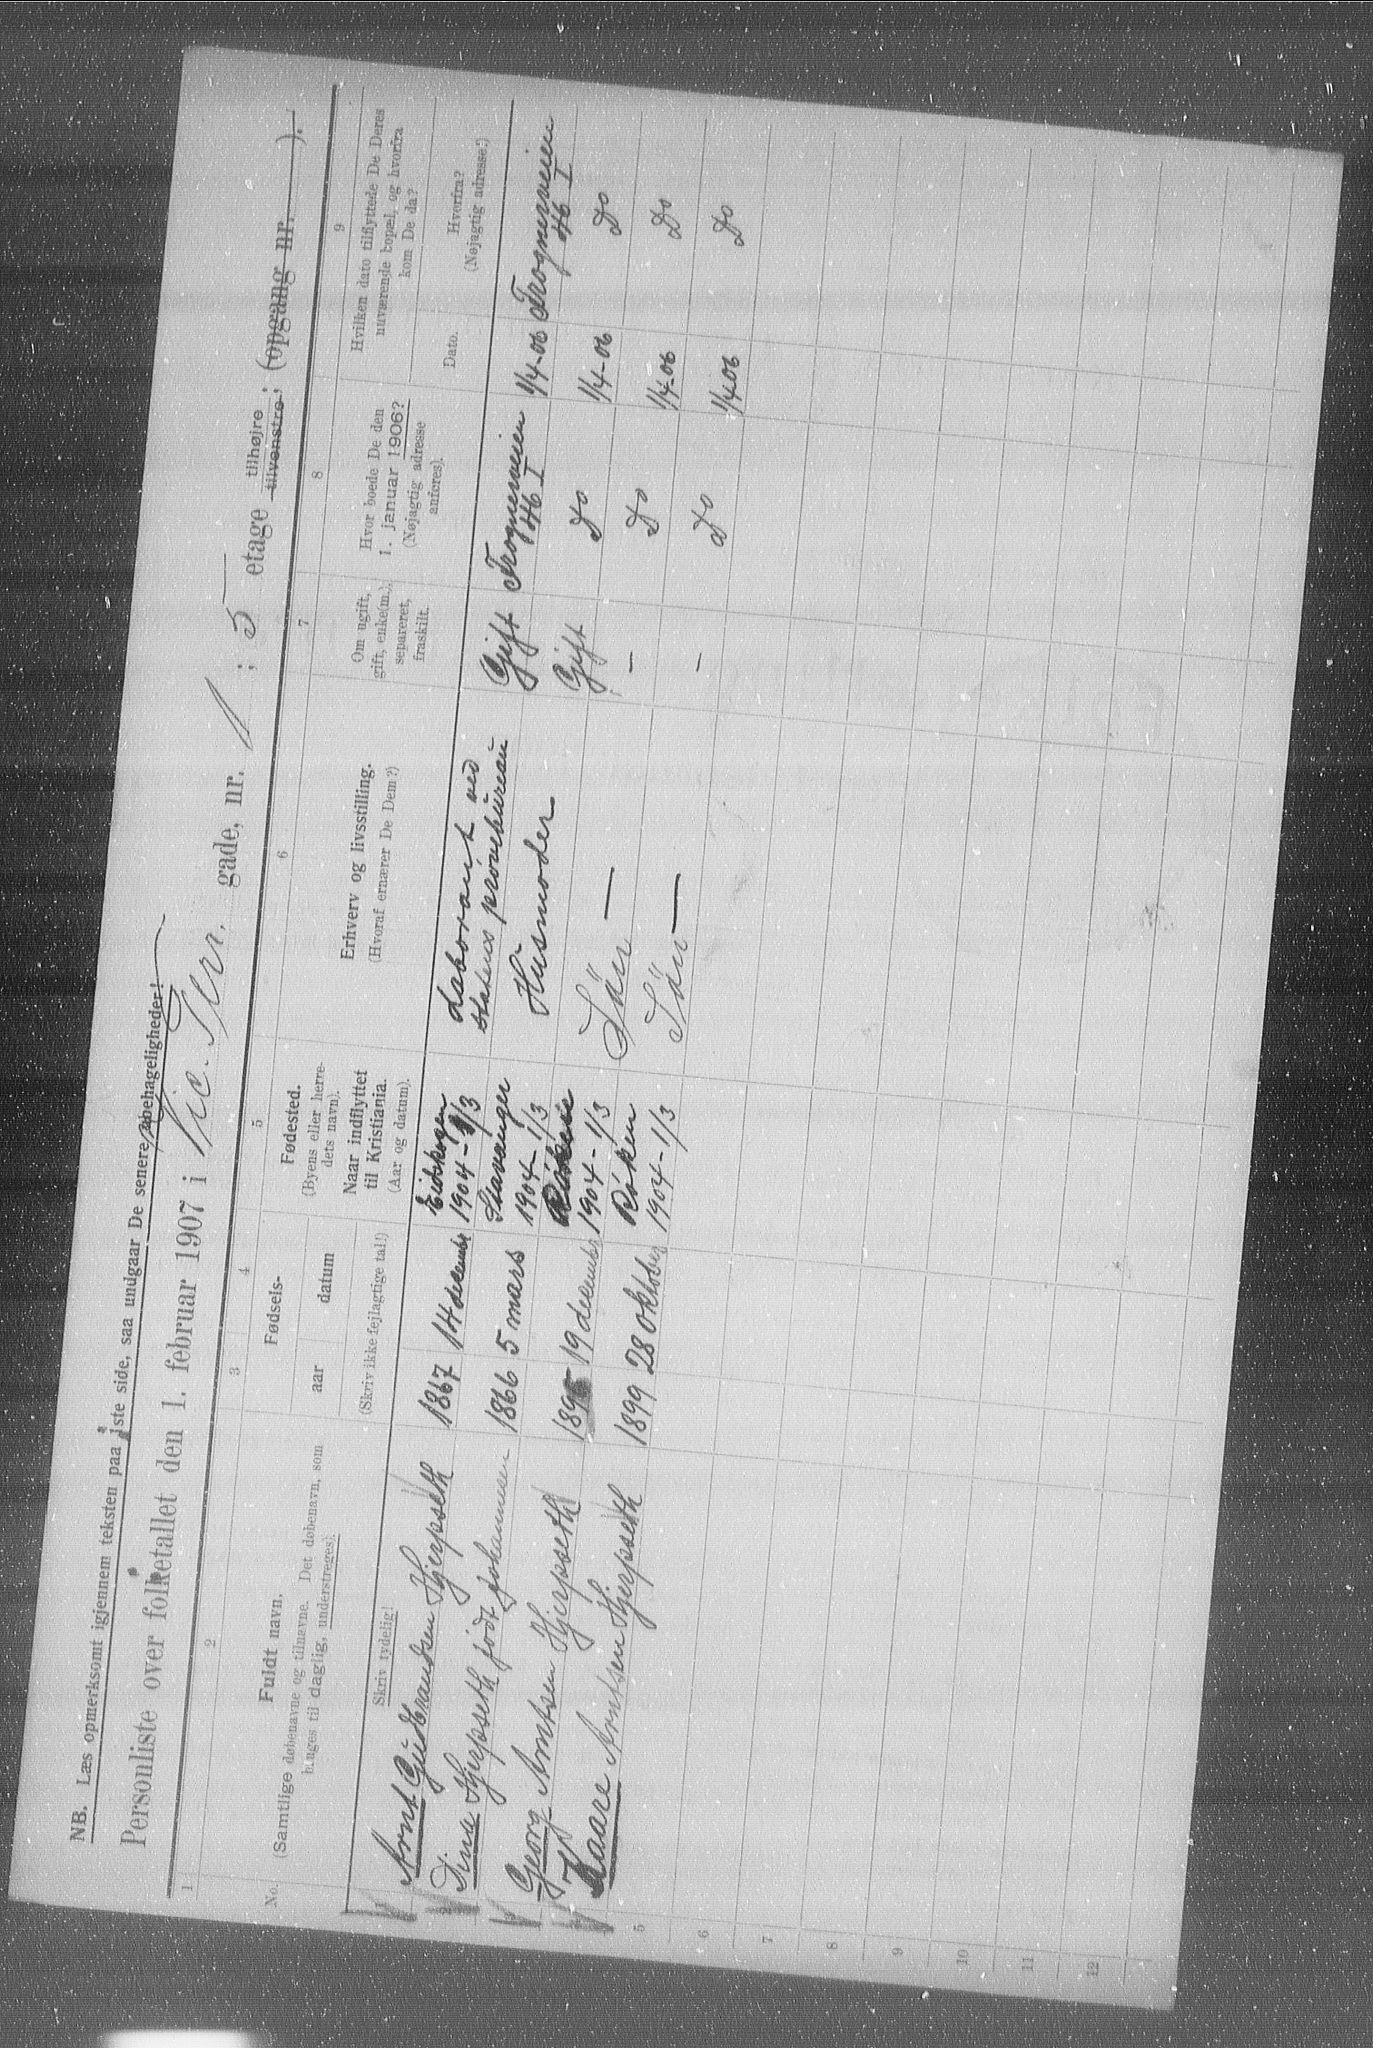 NB. Læs opmerksomt igjennem teksten paa 1ste side, saa undgaar De senere ubehageligheder!
Personliste over folketallet den 1. februar 1907 i Vic. Terr. gade, nr. 11; 5 etage tilhøjre tilvenstre; (opgang nr. ).
1 2 3 4 5 6 7 8 9
No.
Fuldt navn.
(Samtlige døbenavne og tilnavne. Det døbenavn, som
bruges til daglig, understreges).
Skriv tydelig!
Fødsels-
aar datum
(Skriv ikke fejlagtige tal!)
Fødested.
(Byens eller herre-
dets navn).
Naar indflyttet
til Kristiania.
(Aar og datum).
Erhverv og livsstilling.
(Hvoraf ernærer De Dem?)
Om ugift,
gift, enke(m.),
separeret,
fraskilt.
Hvor boede De den
1. januar 1906?
(Nøjagtig adresse
anføres).
Hvilken dato tilflyttede De Deres
nuværende bopæl, og hvorfra
kom De da?
Dato.
Hvorfra?
(Nøjagtig adresse.)
1 Arnt Gudbrandsen Hjerpseth 1867 14 december Eidskogen 1904-1/3 Laborant ved statens prøvebureau Gift Frognerveien 46 I 1/4-06 Frognerveien 46 I
2 Dina Hjerpseth født Johannesen 1866 5 mars Stavanger 1904-1/3 Husmoder Gift Do 1/4-06 Do
3 Georg Arntsen Hjerpseth 1895 19 december Røken 1904-1/3 Sön — - Do 1/4-06 Do
4 Kaare Arntsen Hjerpseth 1899 28 oktober Røken 1904-1/3 Sön — - Do 1/4 06 Do
5
6
7
8
9
10
11
12